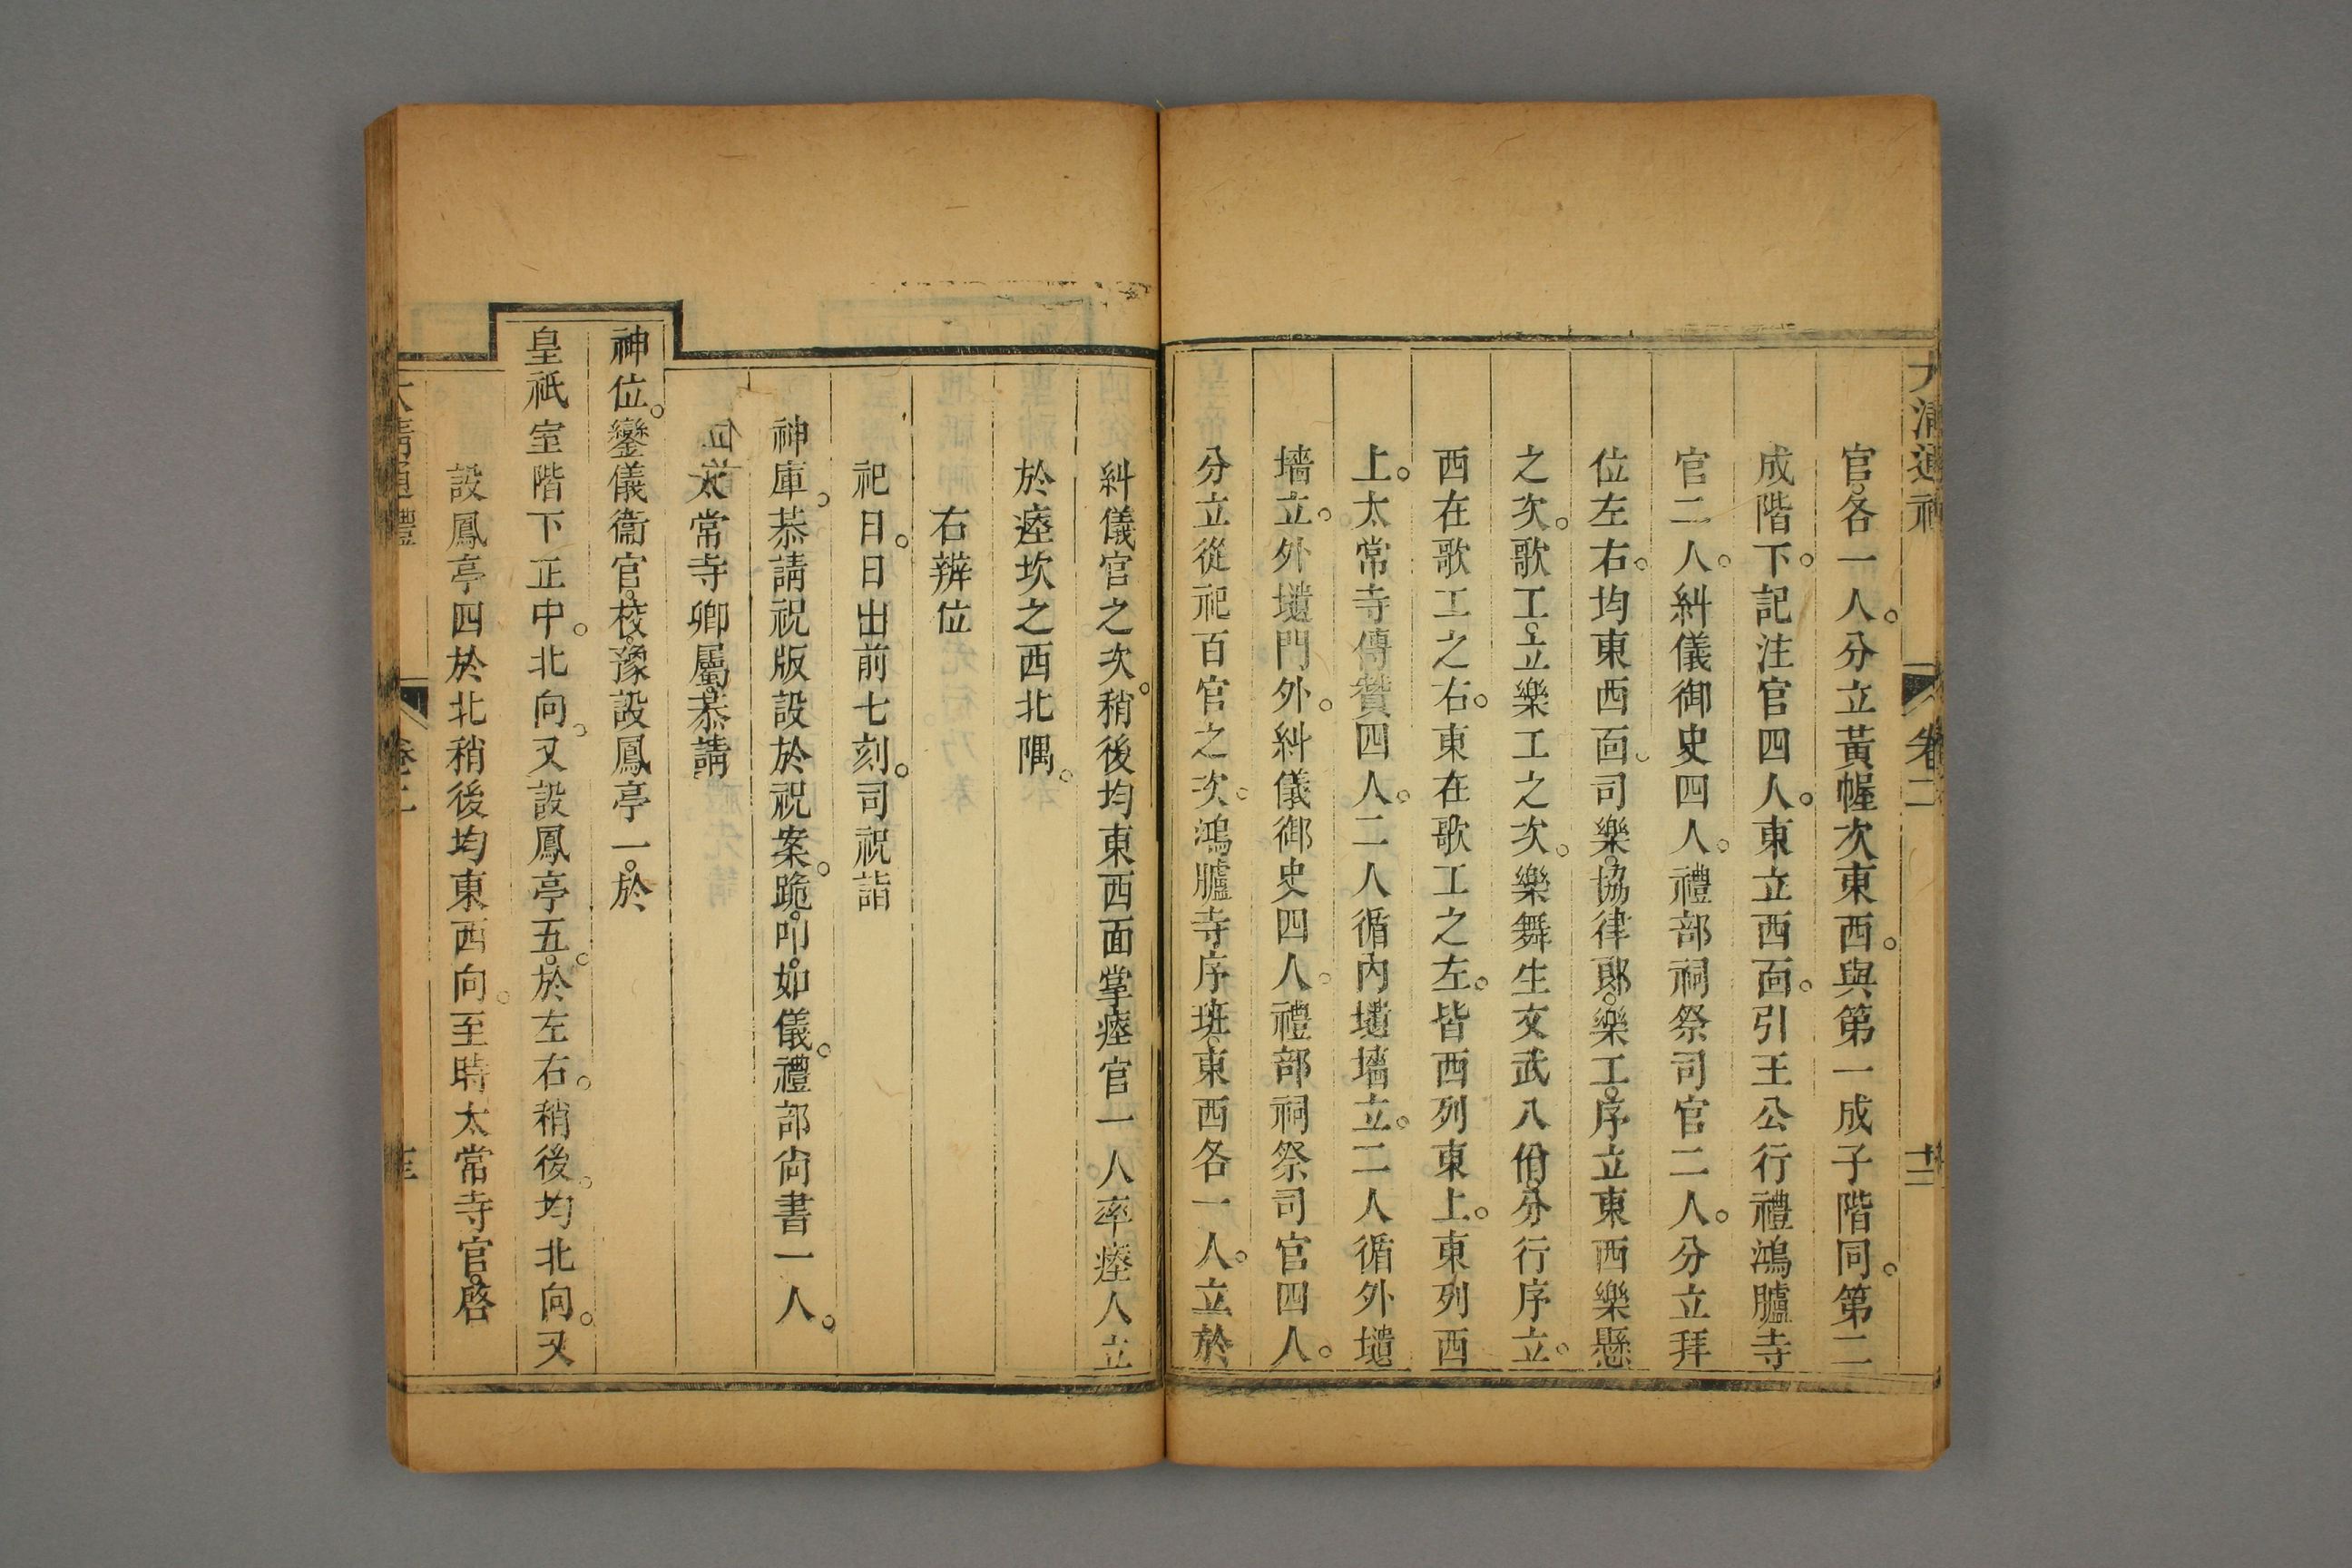 大清通禮 卷二 十二
官各一人。分立黃幄次東西。與第一成子階同。第二
成階下。記注官四人。東立西面。引王公行禮鴻臚寺
官二人。糾儀御史四人。禮部祠祭司官二人。分立拜
位左右。均東西面。司樂。協律郎。樂工。序立東西樂懸
之次。歌工。立樂工之次。樂舞生文武八佾。分行序立。
西在歌工之右。東在歌工之左。皆西列東上。東列西
上。太常寺傳贊四人。二人循內壝墻立。二人循外壝
墻立。外壝門外。糾儀御史四人。禮部祠祭司官四人。
分立從祀百官之次。鴻臚寺序班。東西各一人。立於
糾儀官之次。稍後均東西面掌瘞官一人率瘞人立
於瘞坎之西北隅。
右辨位
祀日。日出前七刻。司祝詣
神庫。恭請祝版設於祝案。跪。叩。如儀。禮部尙書一人。
太常寺卿屬。恭請
神位。鑾儀衞官。校。豫設鳳亭一。於
皇祇室階下正中。北向。又設鳳亭五。於左右。稍後。均北向。又
設鳳亭四於北稍後均東西向。至時太常寺官。啓
大清通禮 卷二